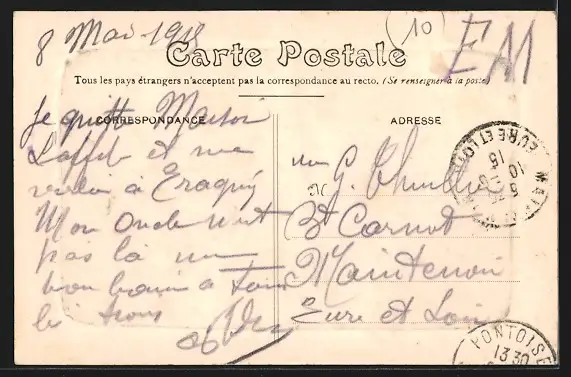 8 Mai 1915
10
EM
Carte Postale
Tous les pays étrangers n'acceptent pas la correspondance au recto. (Se renseigner à la poste)
CORRESPONDANCE
ADRESSE
Je quitte Maison
Laffitte et me
voilà à Eragny
Mon Oncle n'est
pas là un
bon baiser à tous
les trois
G. Thuillier
Bd Carnot
Maintenon
Eure et Loir
EURE ET LOIR
PONTOISE
13 30